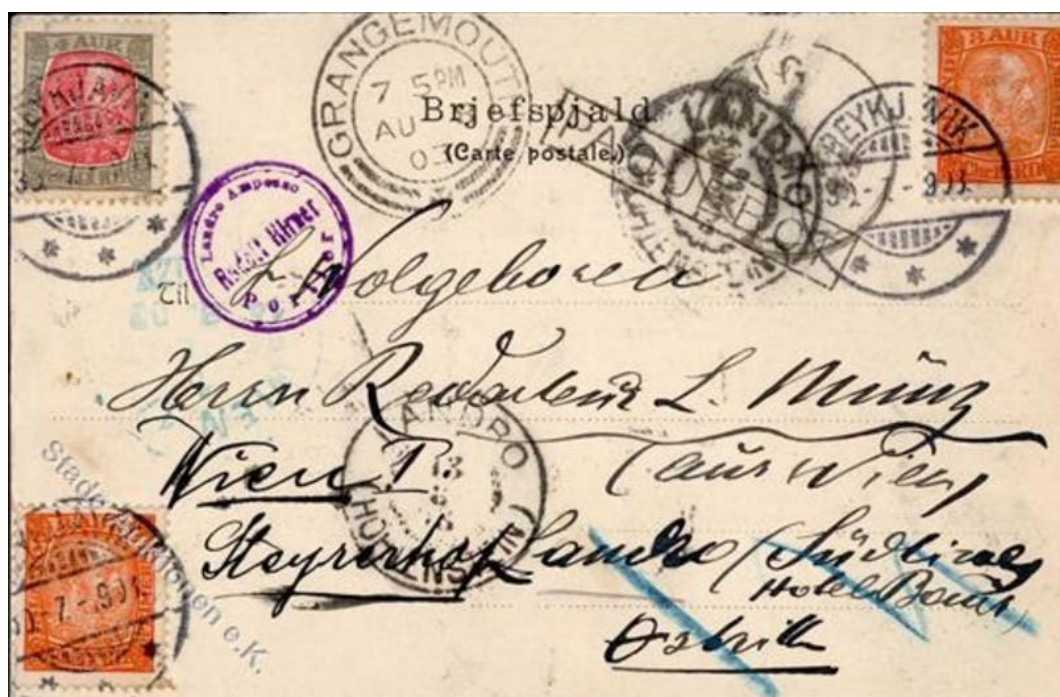 4 AUR
3 AUR
GRANGEMOUTH
7 5PM
AU
03
Brjefspjald.
(Carte postale.)
PAQUEBOT
REYKJAVIK
REYKJAVIK
Landro Ampezzo
Rudolf Hirner
Portier
LANDRO
Til
Wolgeboren
Herrn Redacteur L. Münz
Wien I. (aus Wien)
LANDRO
13
Steyrerhof Landro (Südtirol
Hotel Baur)
Stade Auktionen e.K.